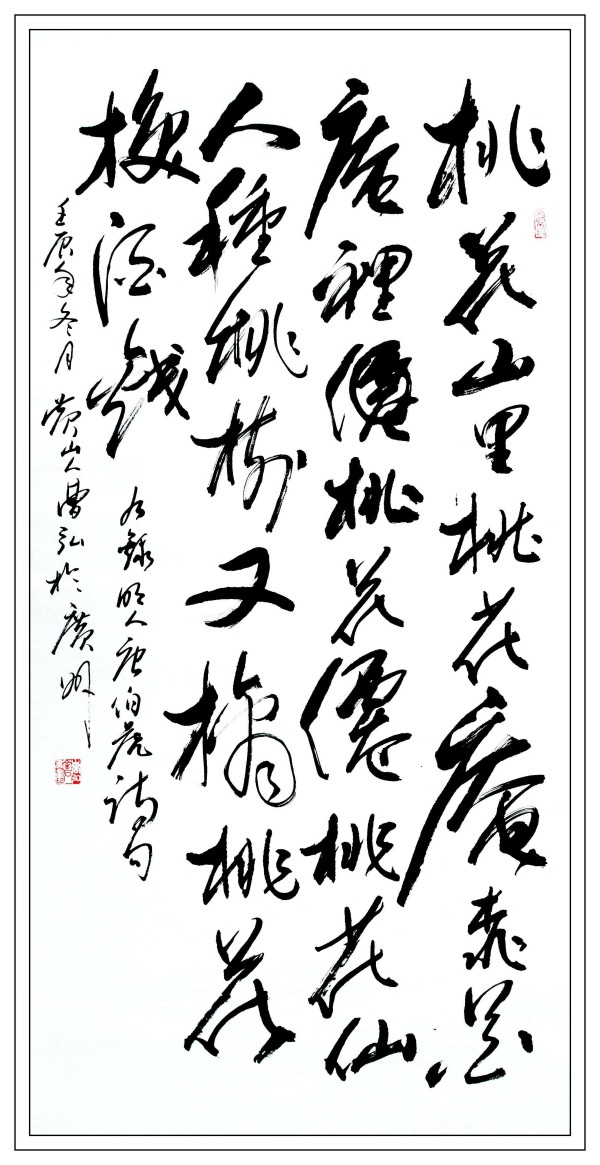 桃花山里桃花庵桃花
庵裡僊桃花僊桃花仙
人種桃樹又摘桃花
換酒錢
右錄明人唐伯虎詩句
壬辰年冬月 黄山人曹弘於廣州